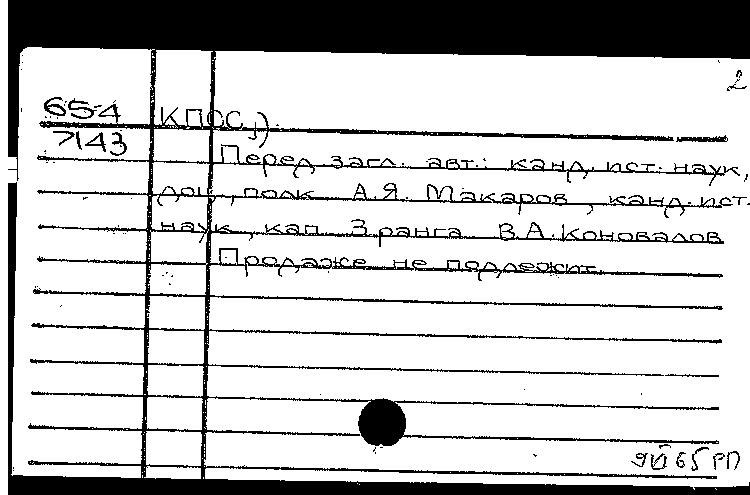 2
65-4
7143
КПСС,).
Перед загл. авт.: канд. ист. наук,
доц., полк. А.Я. Макаров, канд. ист.
наук, кап. 3 ранга В.А. Коновалов
Продаже не подлежит.
9 VI 65 РП